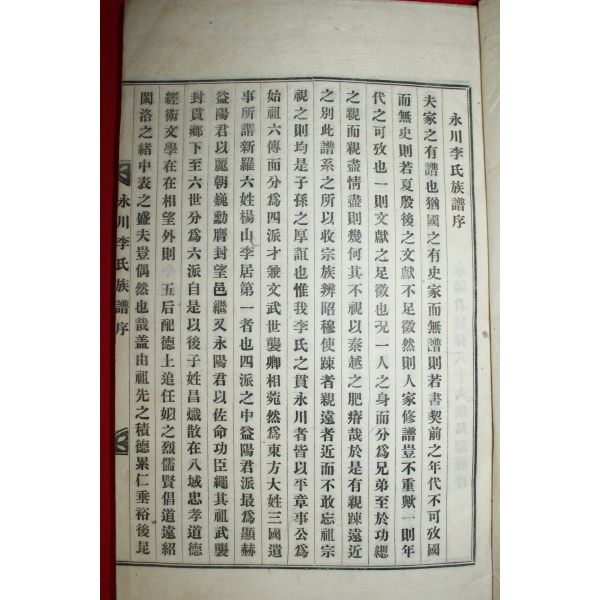 永川李氏族譜序
夫家之有譜也猶國之有史家而無譜則若書契前之年代不可攷國
而無史則若夏殷後之文獻不足徵然則人家修譜豈不重歟一則年
代之可攷也一則文獻之足徵也況一人之身而分爲兄弟至於功緦
之親而親盡情盡則幾何其不視以秦越之肥瘠哉於是有親踈遠近
之別此譜系之所以收宗族辨昭穆使踈者親遠者近而不敢忘祖宗
視之則均是子孫之厚誼也惟我李氏之貫永川者皆以平章事公爲
始祖六傳而分爲四派才兼文武世襲卿相菀然爲東方大姓三國遺
事所謂新羅六姓楊山李居第一者也四派之中益陽君派最爲顯赫
益陽君以麗朝巍勳膺封望邑繼又永陽君以佐命功臣繩其祖武襲
封貫鄉下至六世分爲六派自是以後子姓昌熾散在八域忠孝道德
經術文學在在相望外則 五后配德上追任姒之烈儒賢倡道遠紹
閩洛之緖中表之盛夫豈偶然也哉盖由祖先之積德累仁垂裕後昆
永川李氏族譜序